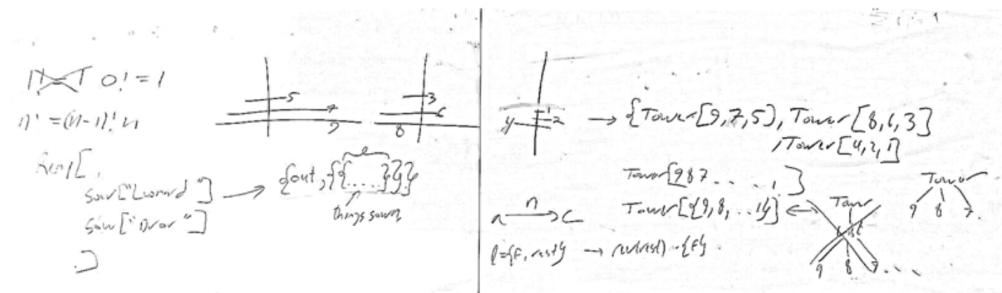 0! = 1
n! = (n-1)! n
Reap[
Sow["Leonard"]
Sow["Dror"]
]
{out, {{......}}}
things sown
5
7
9
3
6
8
1
2
4
→ {Tower[9,7,5], Tower[8,6,3]
, Tower[4,2,1]
Tower[9 8 7 . . . . , ]
Tower[{9,8, ..1}]
a n→ c
l={f, rest} → rev(rest) ~ {f}
Tower
list
9 8 7 . . .
Tower
9 8 7 .